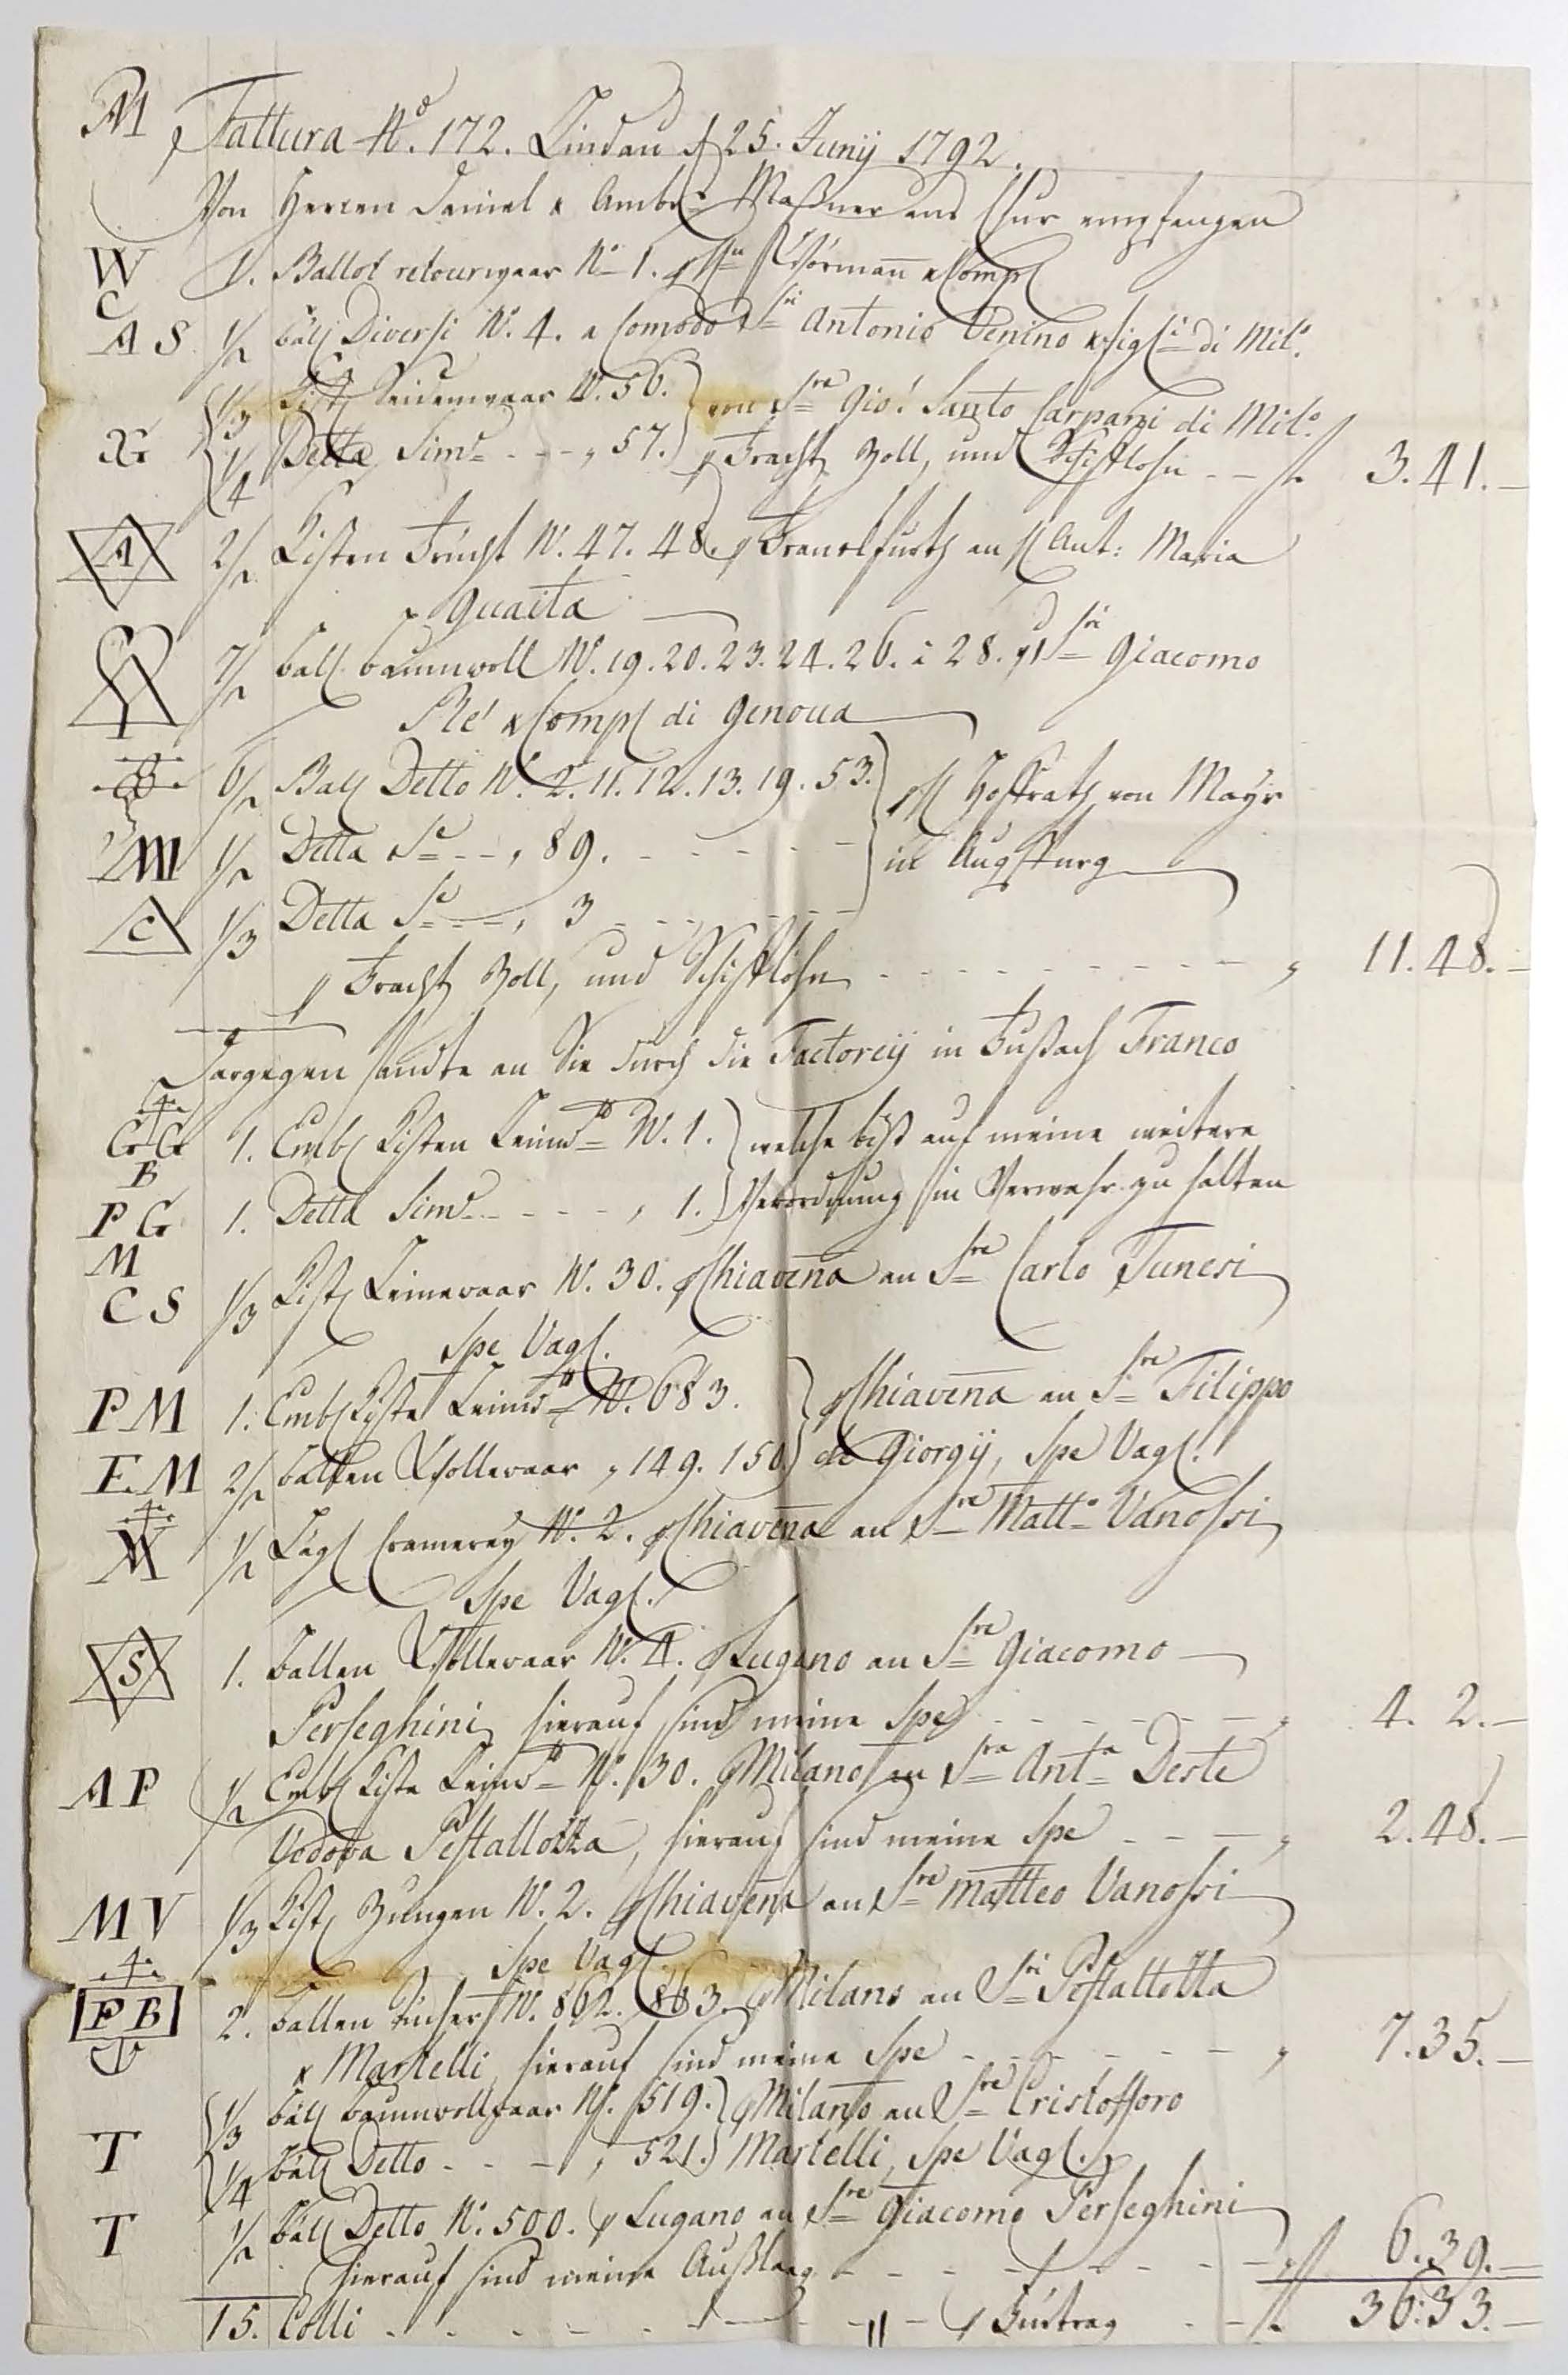 M Fattura No. 172. Lindau d 25. Junij 1792.
Von Herren Daniel & Ambr: Maßner aus Chur empfangen
W C 1. Ballot retourwaar No 1. Wörmann & Comp
A S 1/2 ball Diversi N. 4. a Comodo Sri Antonio Venino & figli di Mil.
1/3 Kist Seidenwaar N. 56. von Sre Gio. Santo Carpani di Milo.
1/4 Detta Simd - - - „ 57. p Fracht, Zoll, und Schifflohn - - f 3.41.-
A 2/2 Kisten Frücht N. 47. 48. p Franckfurth an H Ant: Maria
Guaita
7/2 ball baumwoll N. 19. 20. 23. 24. 26. à 28. p Sri Giacomo
Ré & Comp di Genoua
6/2 Ball Detto N. 2. 11. 12. 13. 19. 53. p H Hoffrath von Mayr
1/2 Detta Se - - „ 89. - - - - - in Augspurg
C 1/3 Detta Se - - „ 3 - - - - -
p Fracht, Zoll, und Schifflohn - - - - - - - - „ 11.48.-
Dargegen sandte an Sie durch die Factoreij in Fußach Franco
G G B 1. Emb Kisten Leinwd N. 1. welche biß auf meine weitere
P G 1. Detta Simd - - - - „ 1. Verordnung in Verwahr zu halten
M C S 1/3 Kist Leinewaar N. 30. p Chiavena an Sre Carlo Tunesi
Spe Vagl.
P M 1. Emb Kiste Leinwd N. 683. p Chiavena an Sre Filippo
F. M 2/2 ballen Wollewaar „ 149. 150. de Giorgij, Spe Vagl.
1/2 Lägl Cramerey N. 2. p Chiavena an Sre Matto Vanossi
Spe Vagl.
S 1. ballen Wollewaar N. 4. p Lugano an Sre Giacomo
Perseghini, hierauf sind meine Spe - - - - - „ 4. 2.-
A P 1/2 Emb Kiste Leinwd N. 30. p Milano an Sra Anta Deste
Vedova Pestallozza, hierauf sind meine Spe - - - „ 2.48.-
M V 1/3 Kist Zungen N. 2. p Chiavena an Sre Matteo Vanossi
Spe Vagl.
F B 2. ballen tücher N. 862. 863. p Milano an Sri Pestallozza
& Martelli, hierauf sind meine Spe - - - - - „ 7.35.-
1/3 ball baumwollwaar N. 519. p Milano an Sre Cristofforo
T 1/4 ball Detto - - - „ 521. Martelli, Spe Vagl.
T 1/2 ball Detto N. 500. p Lugano an Sre Giacomo Perseghini
hierauf sind meine Außlaag - - - - - - - „ f 6.39.-
15. Colli - - - - - - - - p Fürtrag - - f 36.33.-